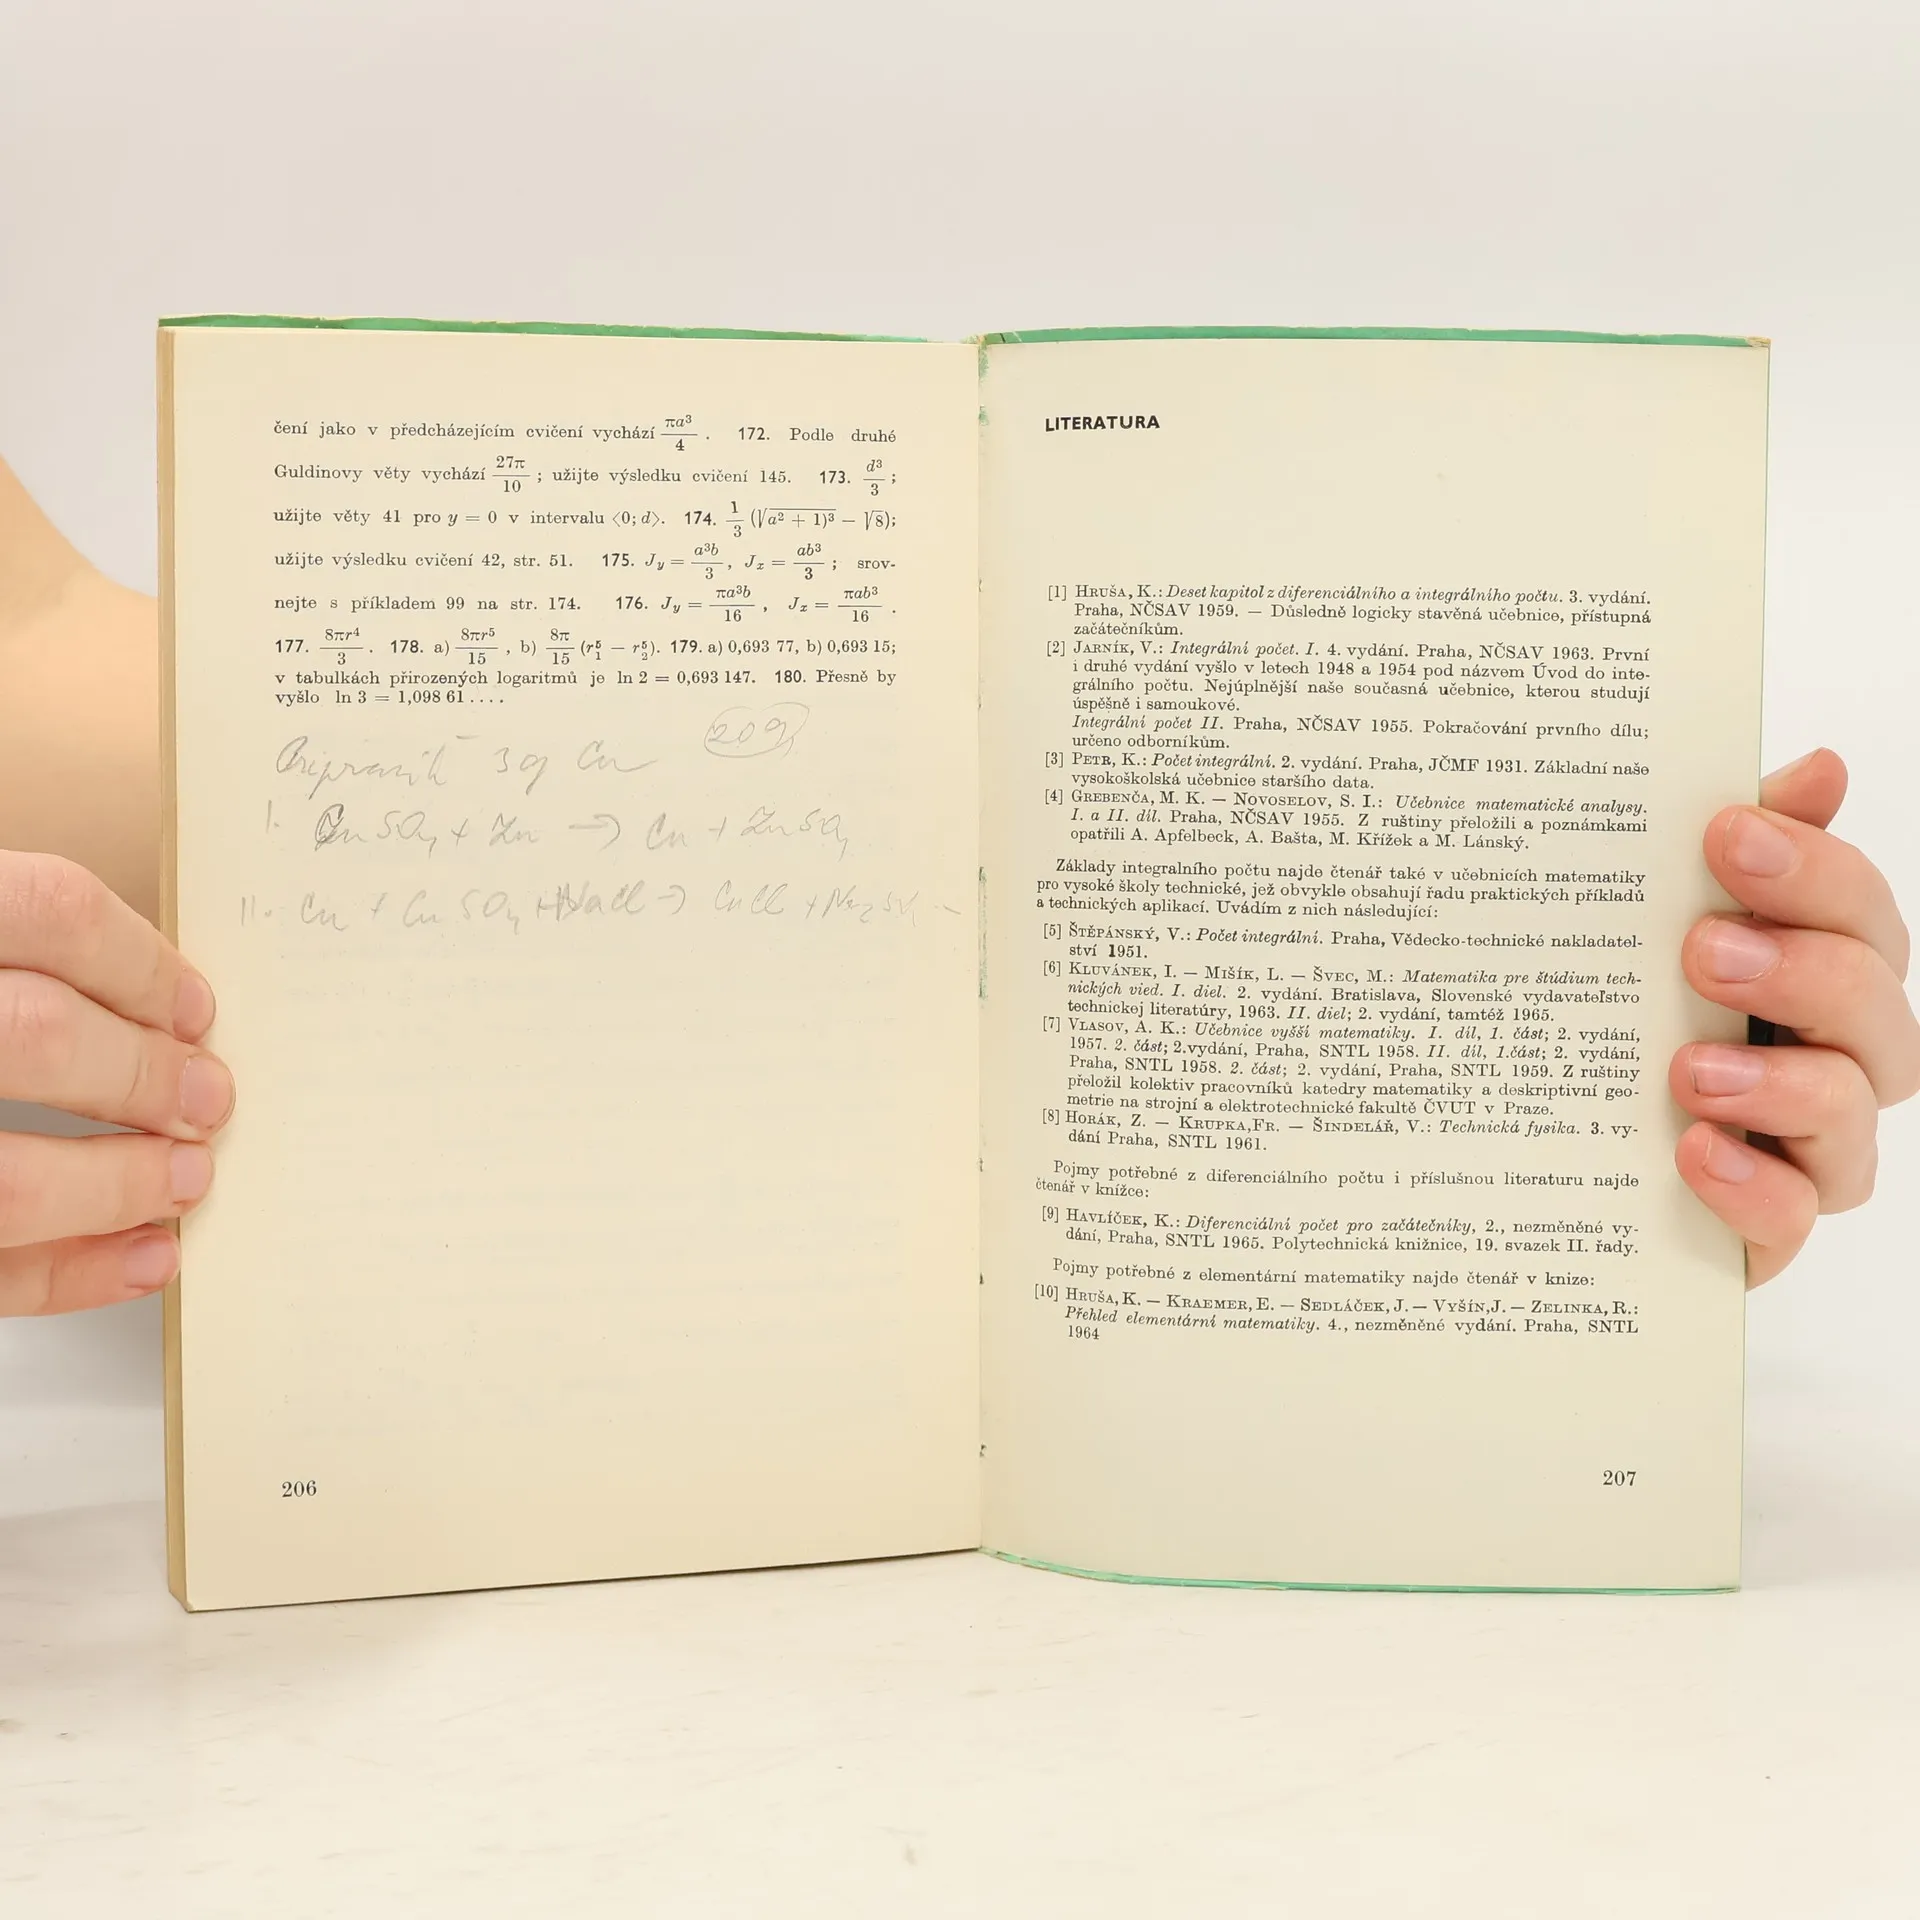 čení jako v předcházejícím cvičení vychází πa³/4 . 172. Podle druhé
Guldinovy věty vychází 27π/10 ; užijte výsledku cvičení 145. 173. d³/3 ;
užijte věty 41 pro y = 0 v intervalu ⟨0; d⟩. 174. 1/3 (√(a² + 1)³ − √8);
užijte výsledku cvičení 42, str. 51. 175. J_y = a³b/3 , J_x = ab³/3 ; srov-
nejte s příkladem 99 na str. 174. 176. J_y = πa³b/16 , J_x = πab³/16 .
177. 8πr⁴/3 . 178. a) 8πr⁵/15 , b) 8π/15 (r₁⁵ − r₂⁵). 179. a) 0,693 77, b) 0,693 15;
v tabulkách přirozených logaritmů je ln 2 = 0,693 147. 180. Přesně by
vyšlo ln 3 = 1,098 61 . . . .
209
Připravit 3g Cu
I. CuSO₄ + Zn → Cu + ZnSO₄
II. Cu + CuSO₄ + NaCl → CuCl + Na₂SO₄
206
LITERATURA
[1] HRUŠA, K.: Deset kapitol z diferenciálního a integrálního počtu. 3. vydání.
Praha, NČSAV 1959. — Důsledně logicky stavěná učebnice, přístupná
začátečníkům.
[2] JARNÍK, V.: Integrální počet. I. 4. vydání. Praha, NČSAV 1963. První
i druhé vydání vyšlo v letech 1948 a 1954 pod názvem Úvod do inte-
grálního počtu. Nejúplnější naše současná učebnice, kterou studují
úspěšně i samoukové.
Integrální počet II. Praha, NČSAV 1955. Pokračování prvního dílu;
určeno odborníkům.
[3] PETR, K.: Počet integrální. 2. vydání. Praha, JČMF 1931. Základní naše
vysokoškolská učebnice staršího data.
[4] GREBENČA, M. K. — NOVOSELOV, S. I.: Učebnice matematické analysy.
I. a II. díl. Praha, NČSAV 1955. Z ruštiny přeložili a poznámkami
opatřili A. Apfelbeck, A. Bašta, M. Křížek a M. Lánský.
Základy integralního počtu najde čtenář také v učebnicích matematiky
pro vysoké školy technické, jež obvykle obsahují řadu praktických příkladů
a technických aplikací. Uvádím z nich následující:
[5] ŠTĚPÁNSKÝ, V.: Počet integrální. Praha, Vědecko-technické nakladatel-
ství 1951.
[6] KLUVÁNEK, I. — MIŠÍK, L. — ŠVEC, M.: Matematika pre štúdium tech-
nických vied. I. diel. 2. vydání. Bratislava, Slovenské vydavateľstvo
technickej literatúry, 1963. II. diel; 2. vydání, tamtéž 1965.
[7] VLASOV, A. K.: Učebnice vyšší matematiky. I. díl, 1. část; 2. vydání,
1957. 2. část; 2.vydání, Praha, SNTL 1958. II. díl, 1.část; 2. vydání,
Praha, SNTL 1958. 2. část; 2. vydání, Praha, SNTL 1959. Z ruštiny
přeložil kolektiv pracovníků katedry matematiky a deskriptivní geo-
metrie na strojní a elektrotechnické fakultě ČVUT v Praze.
[8] HORÁK, Z. — KRUPKA,FR. — ŠINDELÁŘ, V.: Technická fysika. 3. vy-
dání Praha, SNTL 1961.
Pojmy potřebné z diferenciálního počtu i příslušnou literaturu najde
čtenář v knížce:
[9] HAVLÍČEK, K.: Diferenciální počet pro začátečníky, 2., nezměněné vy-
dání, Praha, SNTL 1965. Polytechnická knižnice, 19. svazek II. řady.
Pojmy potřebné z elementární matematiky najde čtenář v knize:
[10] HRUŠA, K. — KRAEMER, E. — SEDLÁČEK, J. — VYŠÍN,J. — ZELINKA, R.:
Přehled elementární matematiky. 4., nezměněné vydání. Praha, SNTL
1964
207